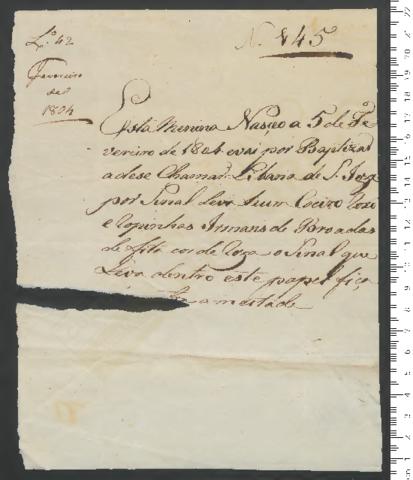 L.º 42
N. 145
Fevereiro
de
1804
Esta Menina Nasceo a 5 de Fe
vereiro de 1804 e vai por Baptizar
a de se Chamar Libania de S. Joze
por Sinal leva hum Coeiro
e Irmans de
de fita cor de Roza o Sinal que
Leva dentro este papel fica
a metade